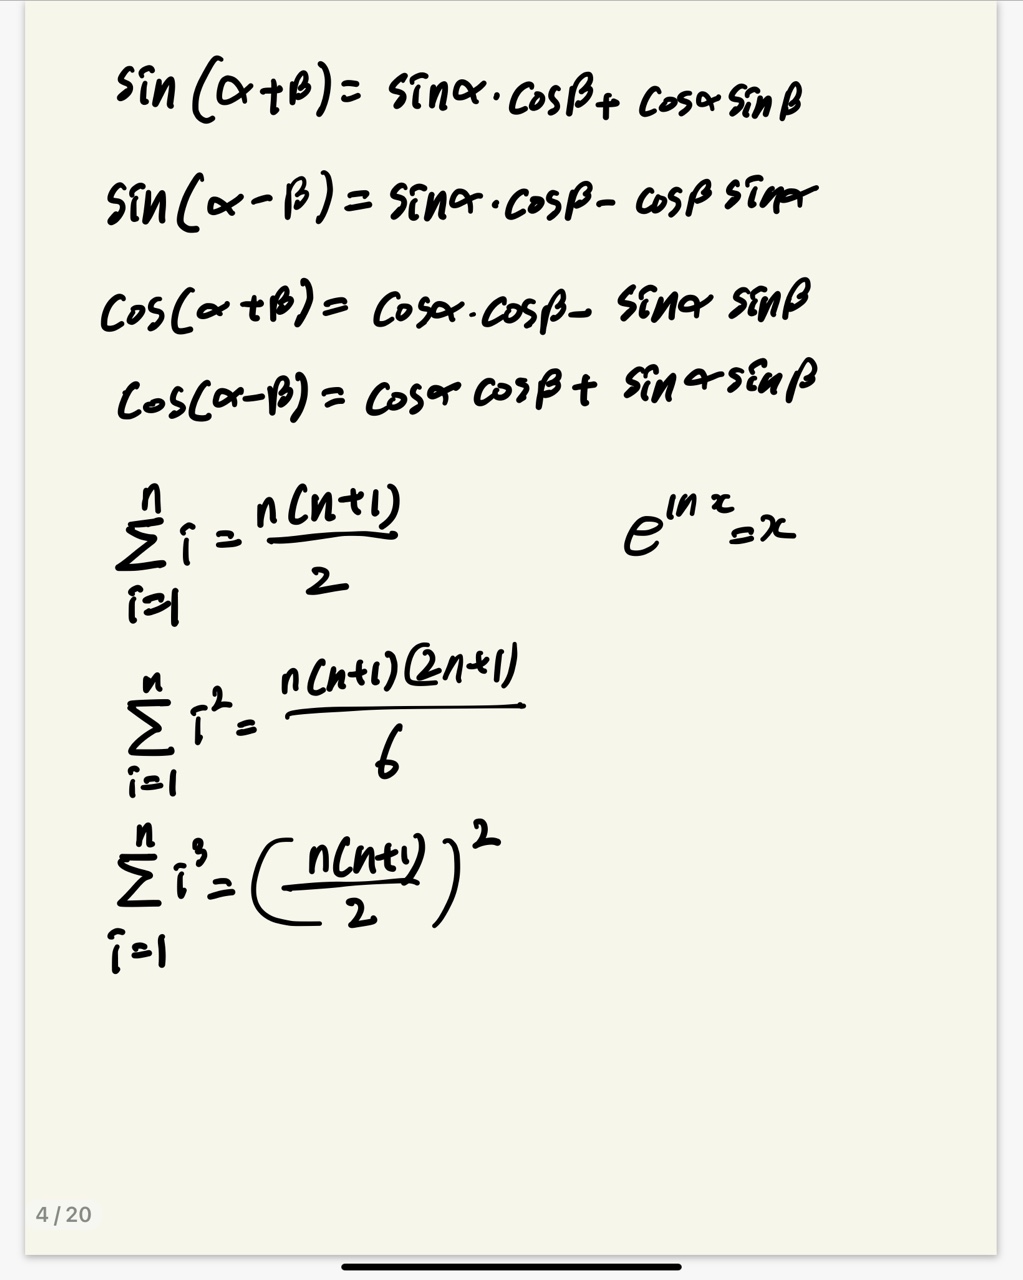 sin(α+β)= sinα·cosβ+ cosα sinβ
sin(α-β)= sinα·cosβ- cosβ sinα
cos(α+β)= cosα·cosβ- sinα sinβ
cos(α-β)= cosα cosβ+ sinα sinβ
∑_{i=1}^{n} i = \frac{n(n+1)}{2}
e^{ln x}=x
∑_{i=1}^{n} i^2 = \frac{n(n+1)(2n+1)}{6}
∑_{i=1}^{n} i^3 = (\frac{n(n+1)}{2})^2
4/20